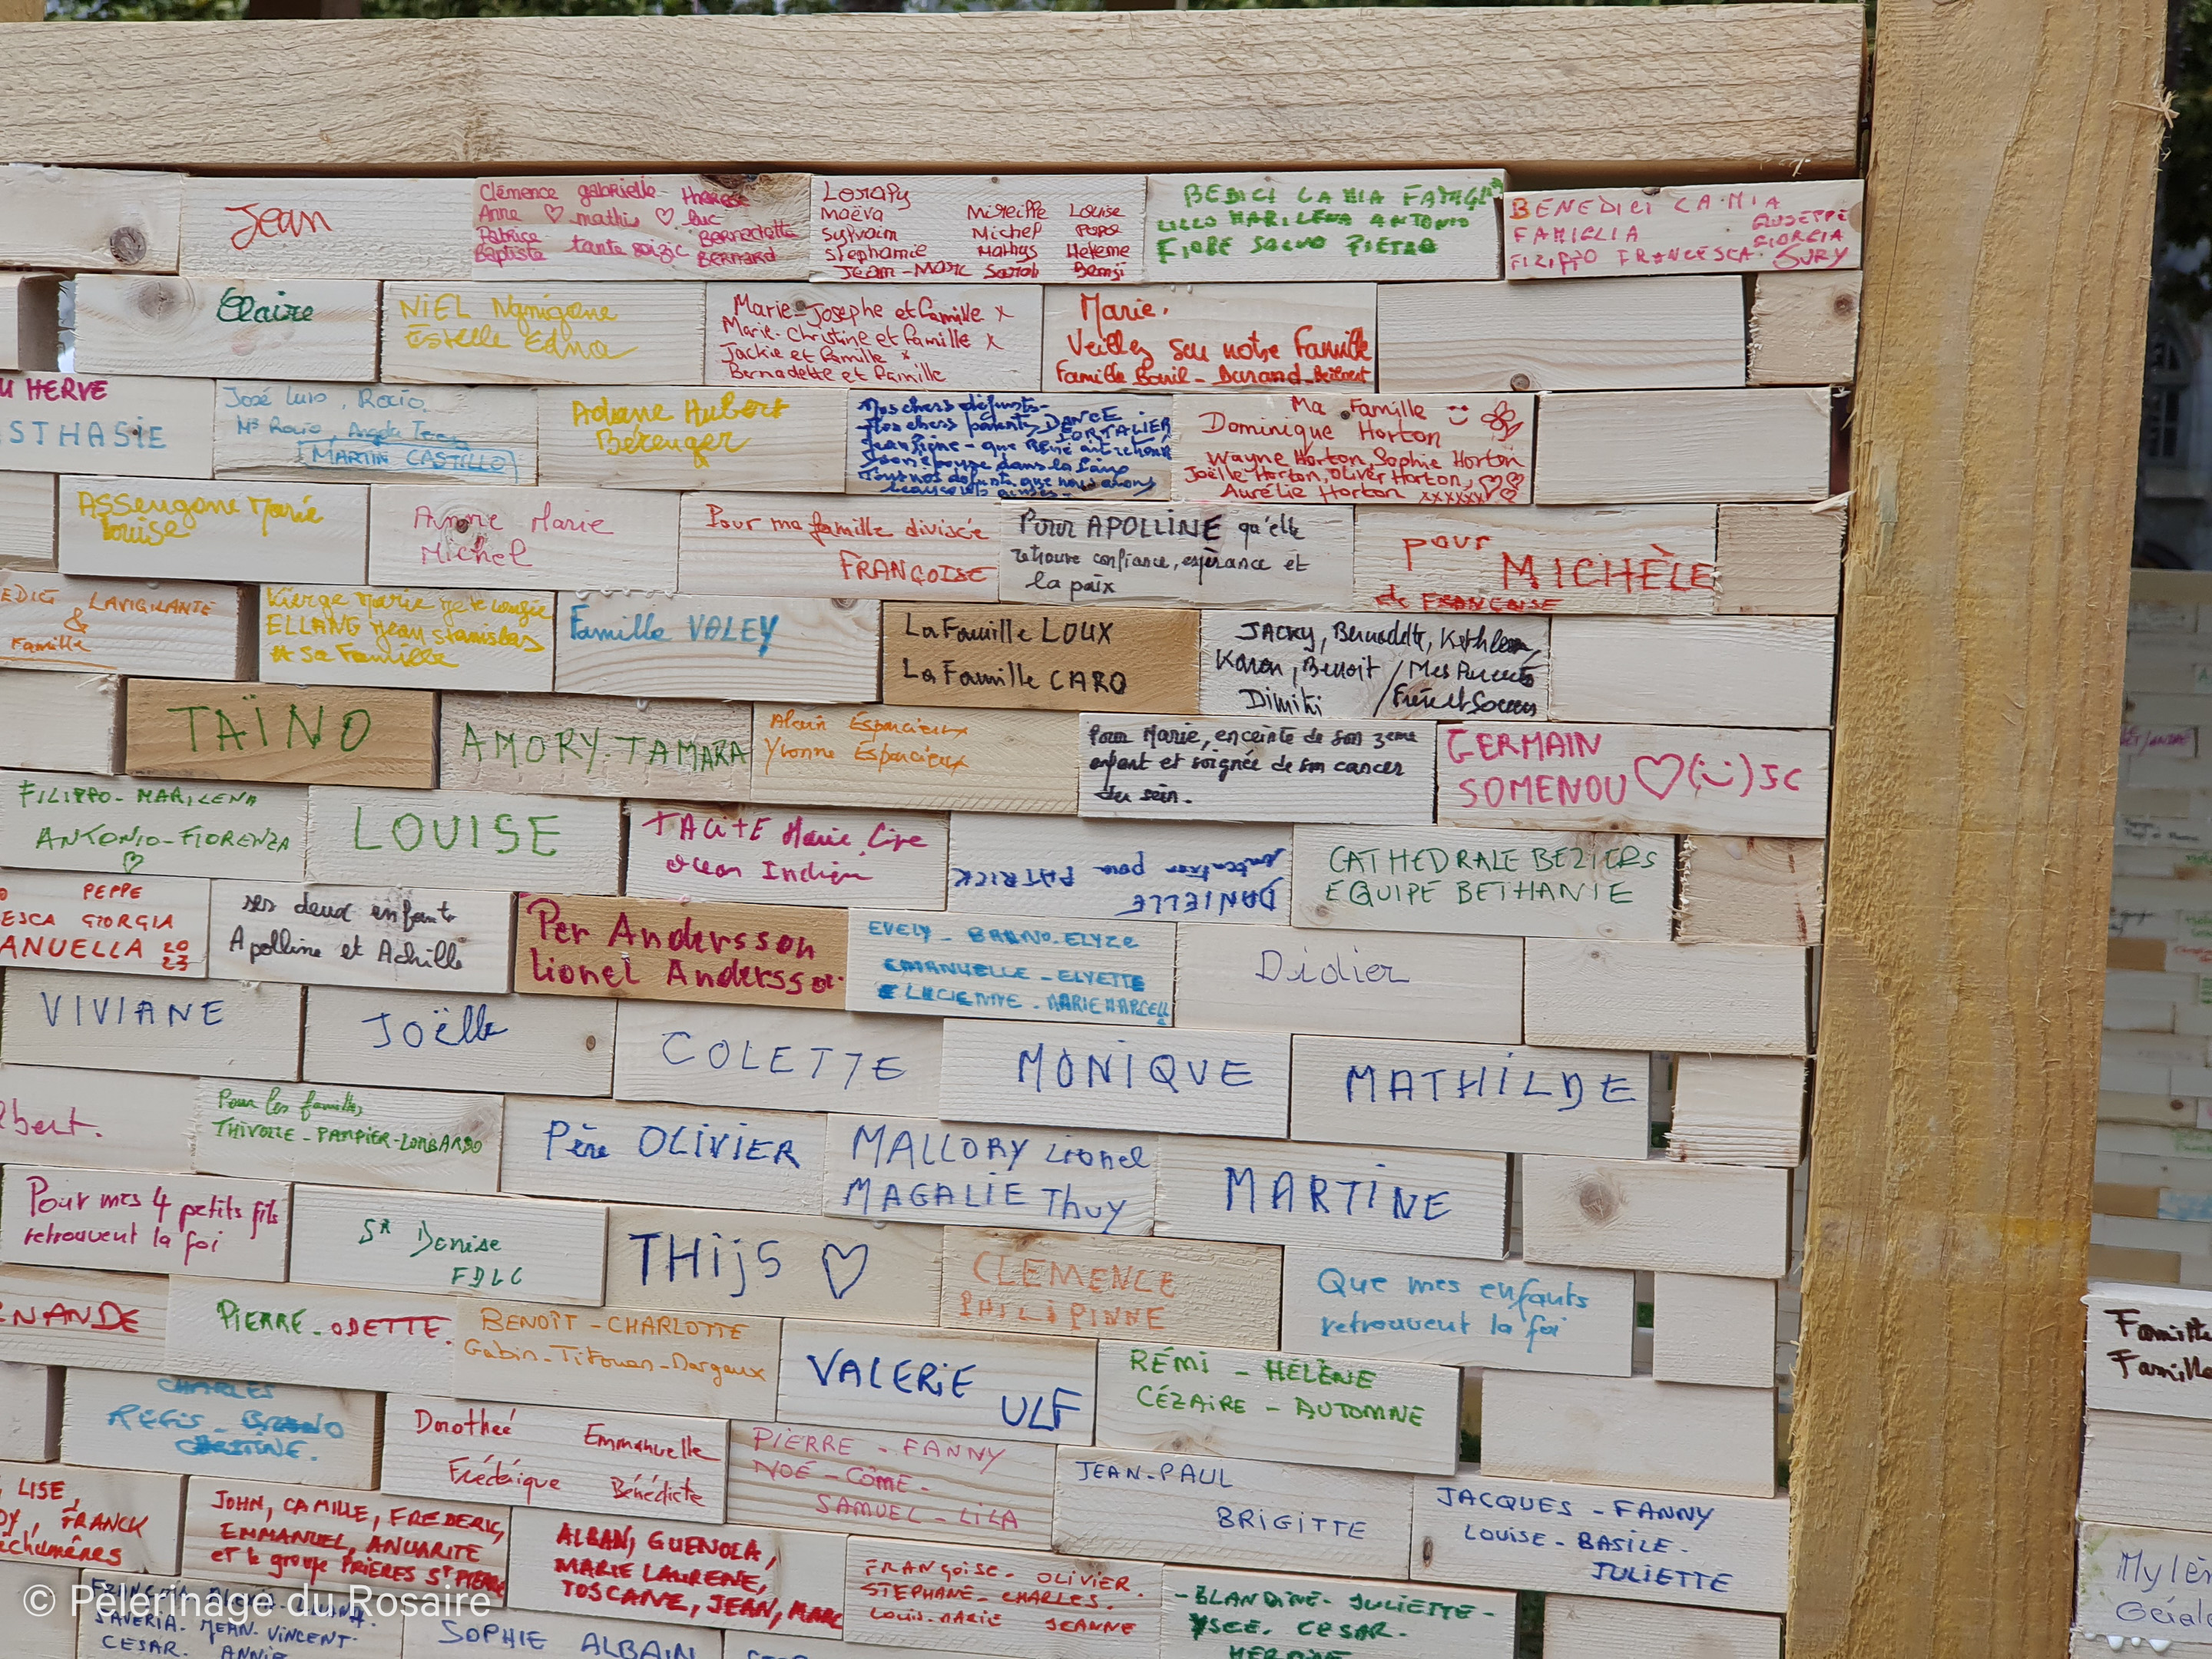 Jean
Clémence gabrielle - thérèse
Anne ♡ mathis ♡ luc
Patrice tante soizic Bernadette
Baptiste BERNARD
Lorapy
Maëva Mireille Louise
Sylvain Michel papa
Stéphanie Mathys Helene
Jean-Marc Sarah Benji
BEDICI LA MIA FAMIGL
LILLO MARILENA ANTONIO
FIORE SALVO PIETRO
BENEDICI LA MIA
FAMIGLIA GIUSEPPE
GIORGIA
FILIPPO FRANCESCA. SURY
Claire
NIEL
Estelle Edna
Marie-Josephe et famille x
Marie-Christine et famille x
Jackie et famille x
Bernadette et famille
Marie,
Veillez sur notre famille
famille Bouil - Durand -
HERVE
STHASIE
José Luis, Rocio.
Mª Rocio, Angela
MARTIN CASTILLO
Ariane Hubert
Bérenger
Nos chers défunts-
Nos chers parents DANCE
FORTALIER
son épouse dans la
Tous nos défunts que nous avons
Ma Famille
Dominique Horton
Wayne Horton, Sophie Horton
Joëlle Horton, Oliver Horton, ♡♡
Aurélie Horton xxxxxx ♡
Assengone Marie
Louise
Anne Marie
Michel
Pour ma famille divisée
FRANÇOISE
Pour APOLLINE qu'elle
retrouve confiance, espérance et
la paix
pour
MICHÈLE
de FRANÇOISE
EDICI LAVIGILANTE
&
Famille
Vierge Marie je te confie
ELLANG Jean Stanislas
& sa Famille
Famille VOLEY
La Famille LOUX
La Famille CARO
JACKY, Bernadette, Kathleen,
Karen, Benoit / Mes Parents
Dimitri / Frère et Soeurs
TAÏNO
AMORY-TAMARA
Alain Espacieux
Yvonne Espacieux
Pour Marie, enceinte de son 3eme
enfant et soignée de son cancer
du sein.
GERMAIN
SOMENOU ♡(ü) JC
FILIPPO- MARILENA
ANTONIO-FIORENZA
♡
LOUISE
TACITE Marie Live
Ocean Indien
DANIELLE
intention pour PATRICK
CATHEDRALE BEZIERS
EQUIPE BETHANIE
PEPPE
ESCA GIORGIA
ANUELLA 2023
ses deux enfants
Apolline et Achille
Per Andersson
Lionel Andersson
EVELY - BRUNO-ELYZE
EMANUELLE - ELYETTE
LUCIENNE - MARIE MARCELL
Didier
VIVIANE
Joëlle
COLETTE
MONIQUE
MATHILDE
bert.
Pour les familles
THIVOLLE - PAMPIER-LOMBARDO
Père OLIVIER
MALLORY Lionel
MAGALIE Thuy
MARTINE
Pour mes 4 petits fils
retrouvent la foi
Sr Denise
FDLC
THijS ♡
CLEMENCE
PHILIPINNE
Que mes enfants
retrouvent la foi
NANDE
PIERRE - ODETTE.
BENOÎT - CHARLOTTE
Gabin - Titouan - Margaux
VALERiE
ULF
RÉMI - HÉLÈNE
CÉZAIRE - AUTOMNE
CHARLES
REGIS - BRUNO
Dorotheé Emmanuelle
Frédérique Bénédicte
PIERRE - FANNY
NOÉ - CÔME -
SAMUEL - LILA
JEAN-PAUL
BRIGITTE
JACQUES - FANNY
LOUISE - BASILE -
JULIETTE
LISE,
DY, FRANCK
chumènes
JOHN, CAMILLE, FREDERIC,
EMMANUEL, ANUARITE
et le groupe PRIÈRES ST PIERRE
ALBAN, GUENOLA,
MARIE LAURENE,
TOSCANE, JEAN, MARC
FRANÇOISE - OLIVIER.
STEPHANE - CHARLES.
LOUIS-MARIE JEANNE
- BLANDINE - JULIETTE -
YSEE. CESAR.
SAVERIA. JEAN-VINCENT
CESAR. ANNIE
SOPHIE ALBAIN
Famille
Famille
© Pèlerinage du Rosaire